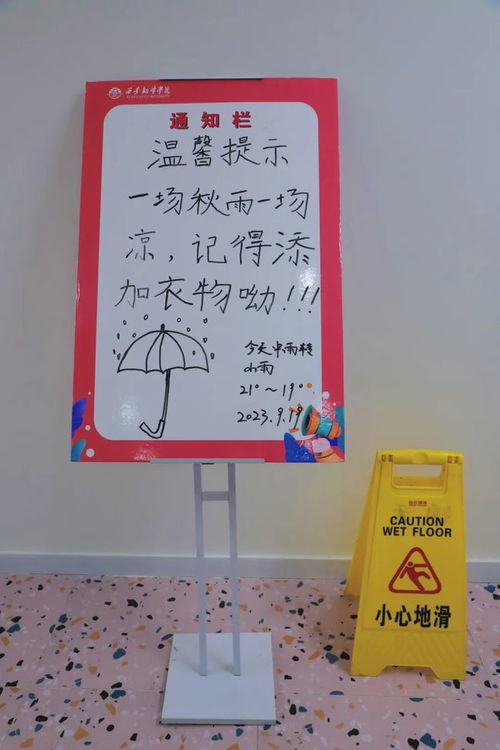 西安翻译学院
通知栏
温馨提示
一场秋雨一场
凉，记得添
加衣物呦!!!
今天中雨转
小雨
21°~19°
2023.9.19
CAUTION
WET FLOOR
小心地滑